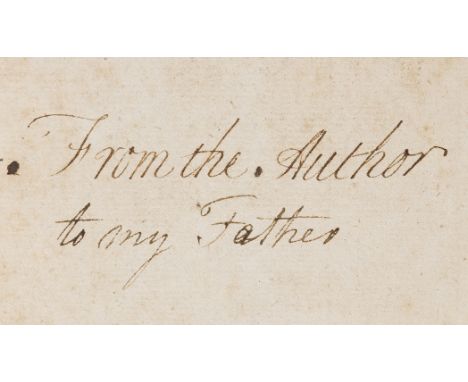 From the. Author
to my Father